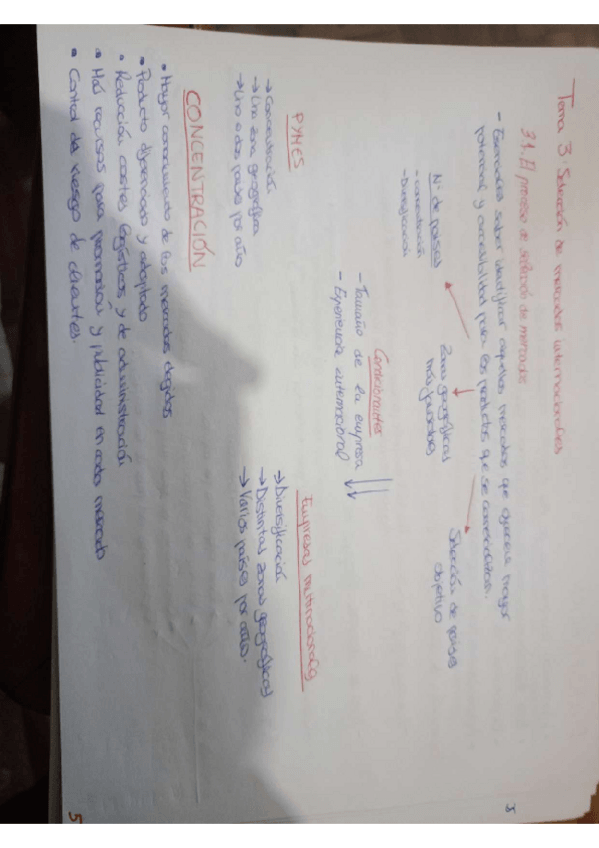 Tema 3: Selección de mercados internacionales
3.1. El proceso de selección de mercados
- Esenciales saber identificar aquellos mercados que ofrecen mayor
potencial y accesibilidad para los productos que se comercializan.
Nº de países
- concentración
- Diversificación
Zonas geográficas
más favorables
Selección de países
objetivo
Condicionantes
- Tamaño de la empresa
- Experiencia internacional
PYMES
→ Concentración
→ Una zona geográfica
→ Uno o dos países por año
Empresas multinacionales
→ Diversificación
→ Distintas zonas geográficas
→ Varios países por año.
CONCENTRACIÓN
• Mayor conocimiento de los mercados elegidos
• Producto diferenciado y adaptado
• Reducción costes logísticos y de administración
• Más recursos para promoción y publicidad en cada mercado
• Control del riesgo de clientes
5